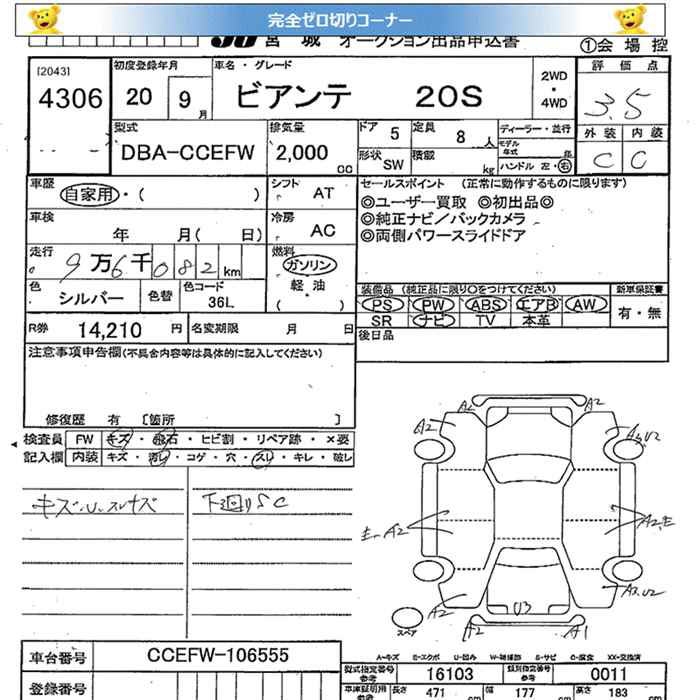 完全ゼロ切りコーナー
JU 宮城 オークション出品申込書
①会場控
[2043]
4306
初度登録年月
20 9月
車名・グレード
ビアンテ 20S
2WD
・
4WD
評価点
3.5
型式
DBA-CCEFW
排気量
2,000 cc
ドア 5
定員 8 人
形状 SW
積載 kg
ディーラー・並行
モデル年式 年
ハンドル 左・右
外装 内装
C C
車歴
自家用・( )
シフト
AT
車検
年 月( 日)
冷房
AC
走行
9万6千082km
燃料
ガソリン
軽・油
( )
色
シルバー
色替
色コード
36L
セールスポイント (正常に動作するものに限ります)
◎ユーザー買取 ◎初出品◎
◎純正ナビ/バックカメラ
◎両側パワースライドドア
装備品 (純正品に限り○をつけてください)
新車保証書
PS PW ABS エアB AW
SR ナビ TV 本革
有・無
R券 14,210 円
名変期限 月 日
後日品
注意事項申告欄(不具合内容等は具体的に記入してください)
修復歴 有 〔箇所 〕
検査員 FW キズ・飛石・ヒビ割・リペア跡・×要
記入欄 内装 キズ・汚レ・コゲ・穴・スレ・キレ・破レ
キズ・U・スリキズ
下廻りSC
A2 A2
A2 A3,U2
E、A2
A2,E
A2 U3 A2,U2
A2 A1
スペア
A-キズ E-エクボ U-凹み W-補修跡 S-サビ C-腐食 XX-交換済
車台番号 CCEFW-106555
型式指定番号 参考 16103
類別指定番号 参考 0011
登録番号
車庫証明用 参考
長さ 471 cm
幅 177 cm
高さ 183 cm